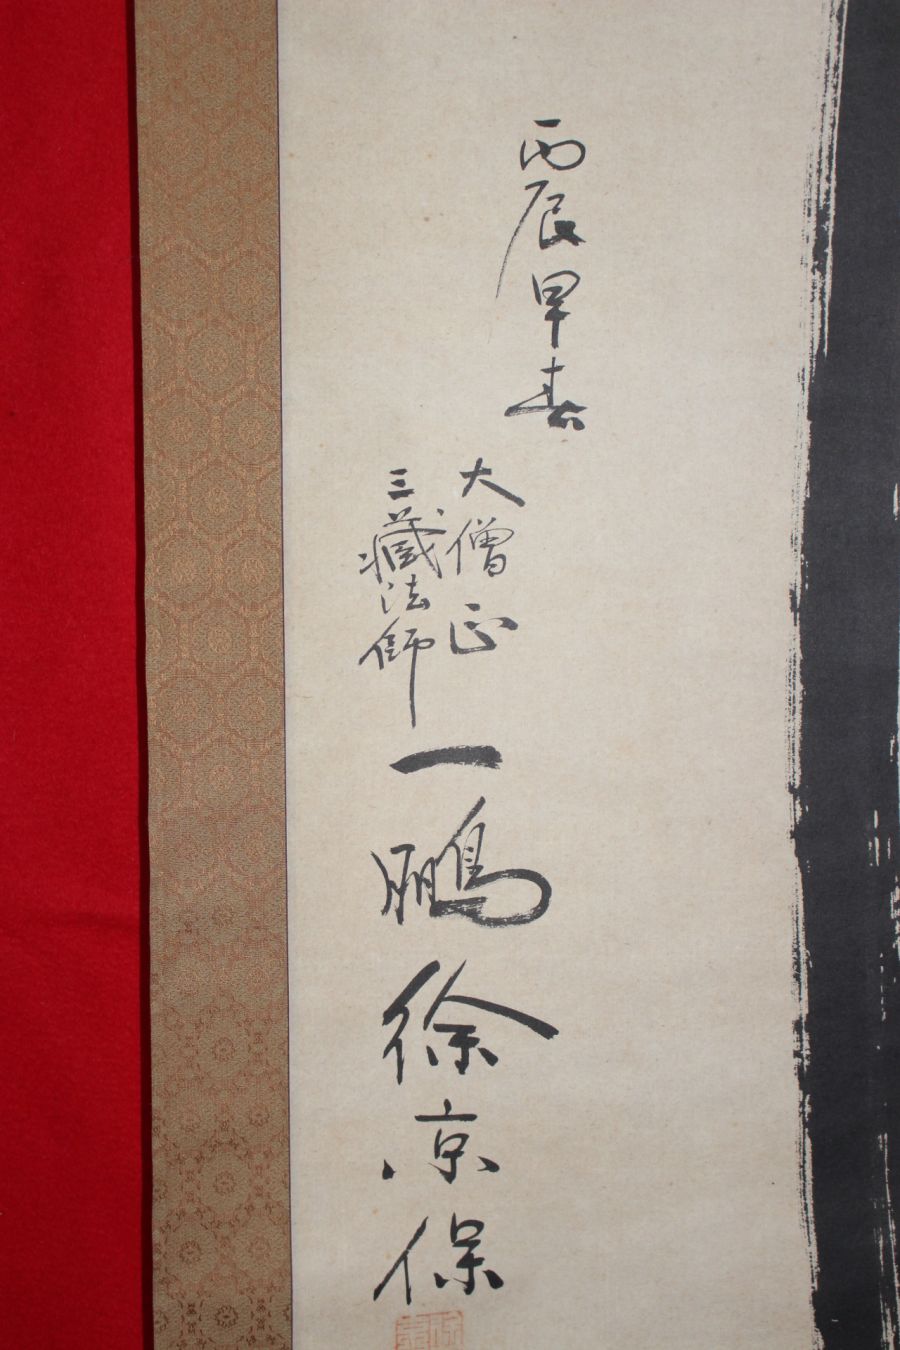 丙辰早春
大僧正
三藏法師
一鵬徐京保